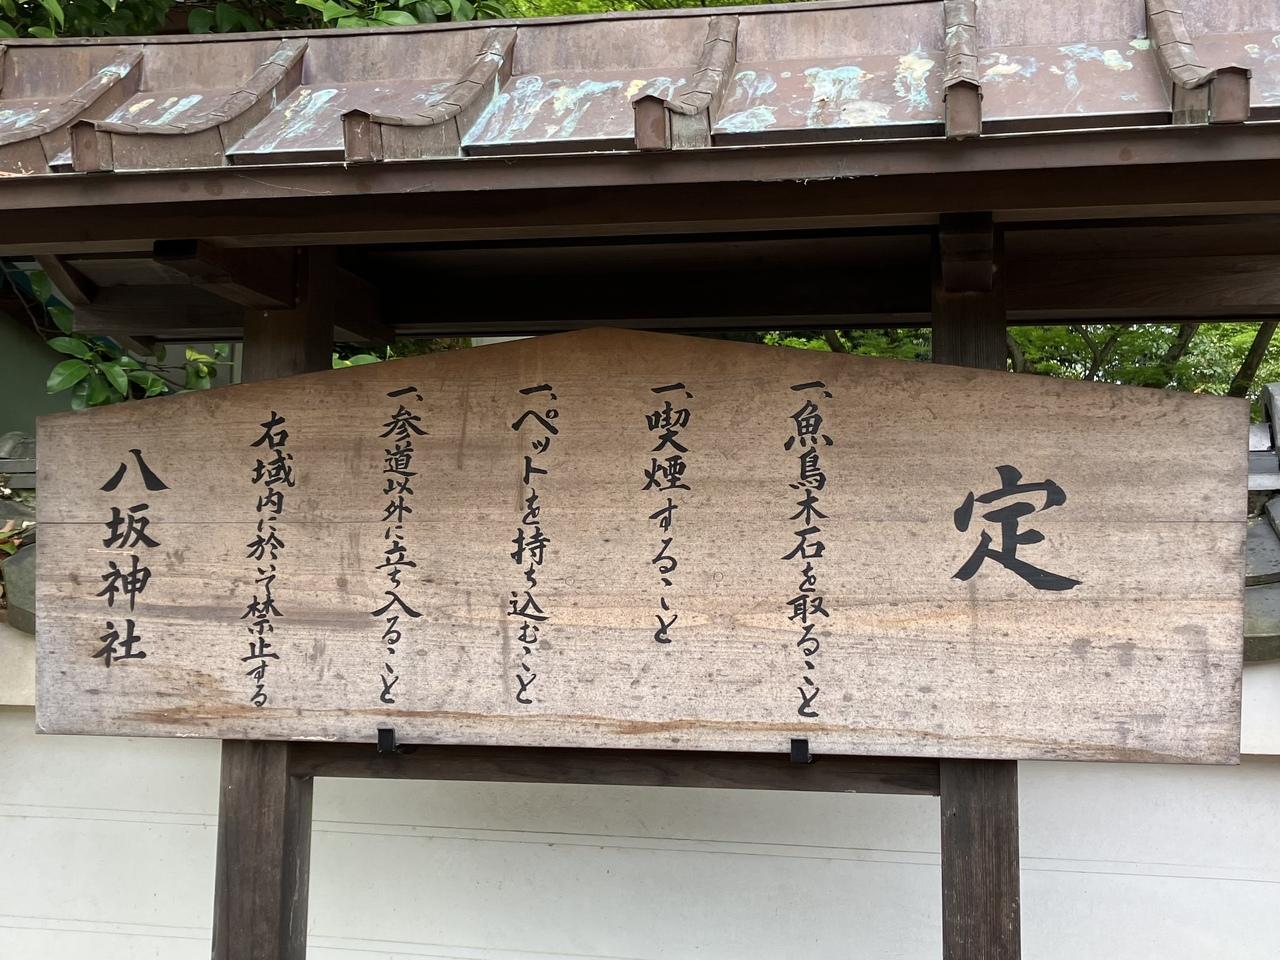 定
一、魚鳥木石を取ること
一、喫煙すること
一、ペットを持ち込むこと
一、参道以外に立ち入ること
右域内に於いて禁止する
八坂神社